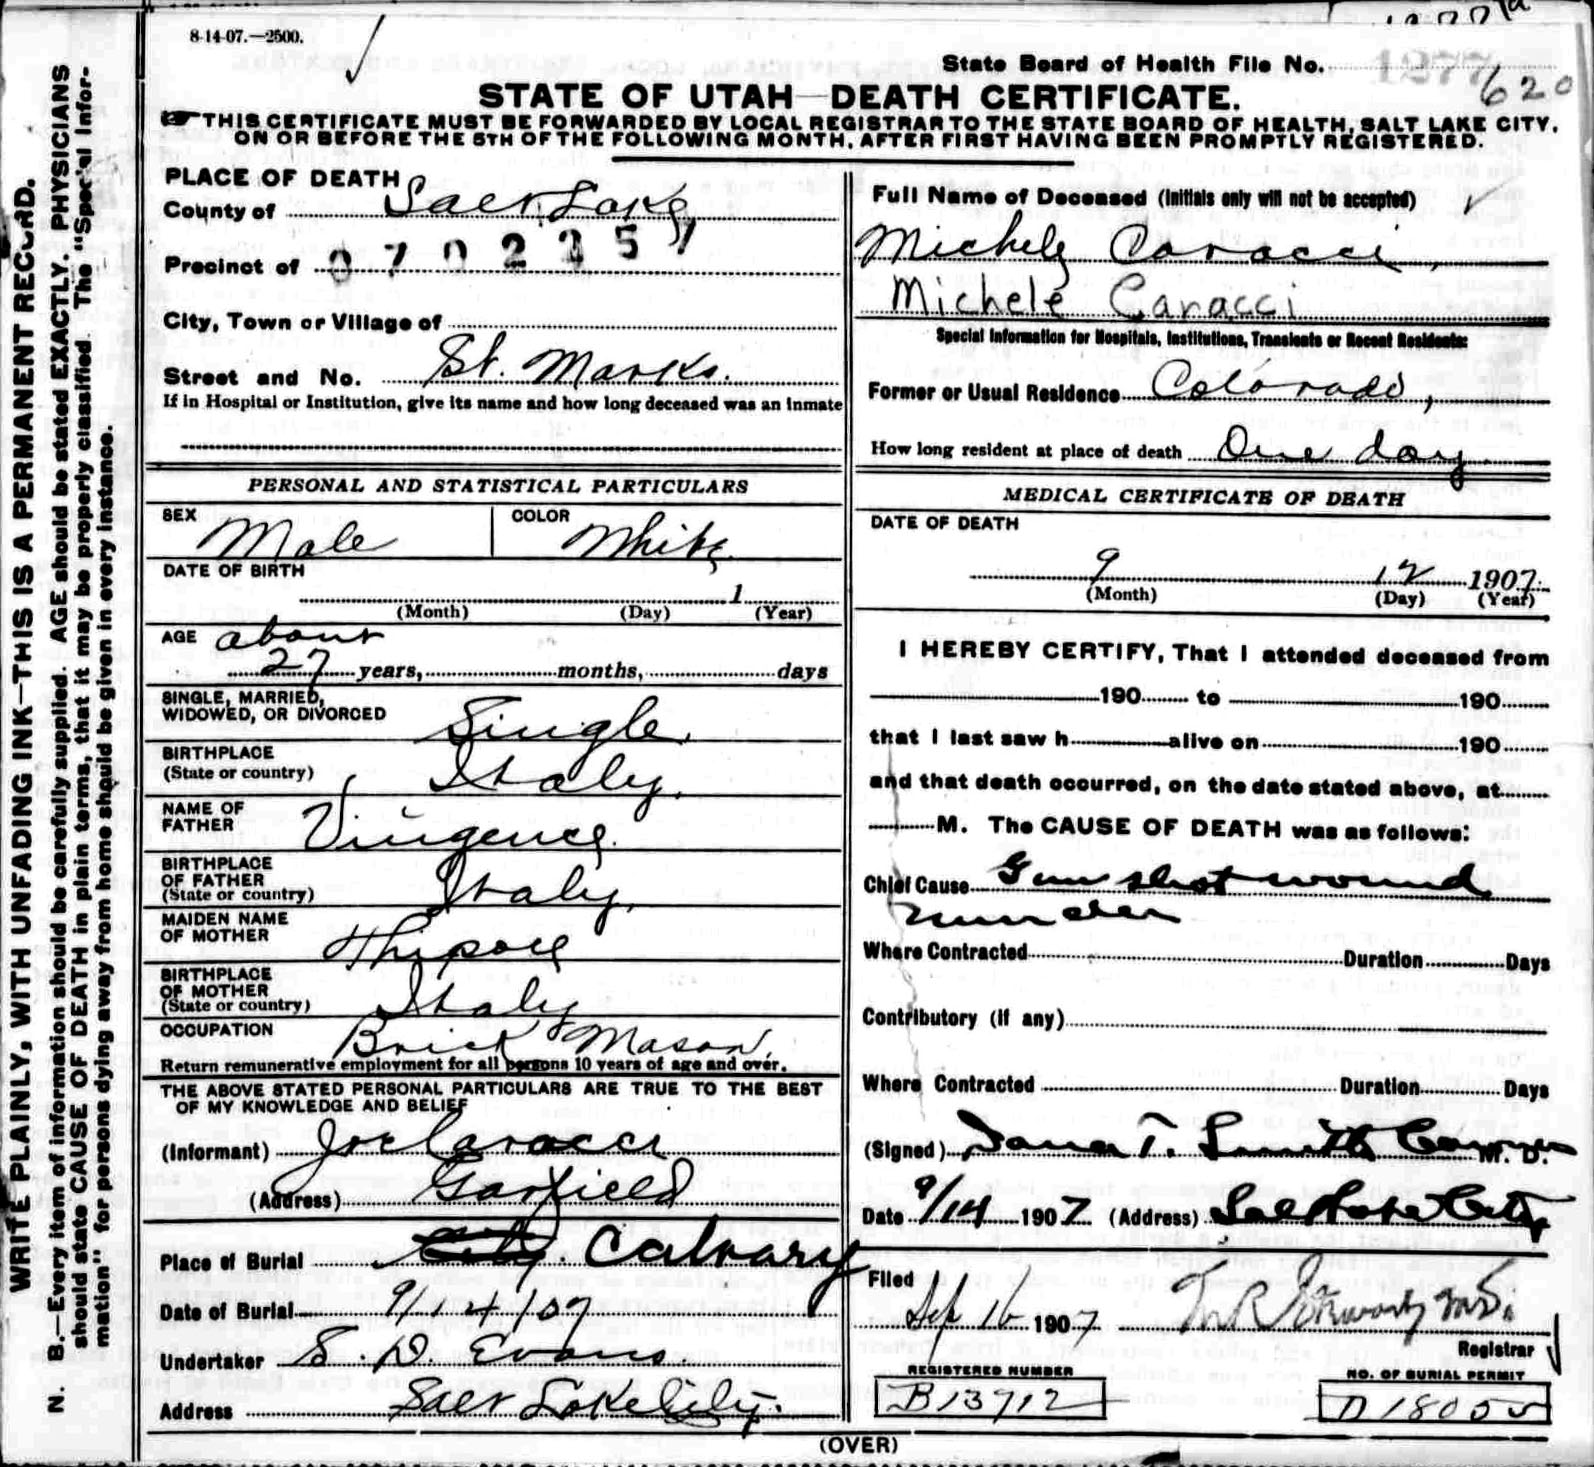 8-14-07.—2500.
State Board of Health File No. 1277
620
STATE OF UTAH—DEATH CERTIFICATE.
THIS CERTIFICATE MUST BE FORWARDED BY LOCAL REGISTRAR TO THE STATE BOARD OF HEALTH, SALT LAKE CITY,
ON OR BEFORE THE 5TH OF THE FOLLOWING MONTH, AFTER FIRST HAVING BEEN PROMPTLY REGISTERED.
WRITE PLAINLY, WITH UNFADING INK—THIS IS A PERMANENT RECORD.
N. B.—Every item of information should be carefully supplied. AGE should be stated EXACTLY. PHYSICIANS
should state CAUSE OF DEATH in plain terms, that it may be properly classified. The "Special Infor-
mation" for persons dying away from home should be given in every instance.
PLACE OF DEATH
County of Salt Lake
Precinct of
City, Town or Village of
Street and No. St. Marks.
If in Hospital or Institution, give its name and how long deceased was an inmate
PERSONAL AND STATISTICAL PARTICULARS
SEX Male
COLOR White
DATE OF BIRTH
1
(Month) (Day) (Year)
AGE about
27 years, months, days
SINGLE, MARRIED,
WIDOWED, OR DIVORCED Single.
BIRTHPLACE
(State or country) Italy.
NAME OF
FATHER Vingence.
BIRTHPLACE
OF FATHER
(State or country) Italy.
MAIDEN NAME
OF MOTHER
BIRTHPLACE
OF MOTHER
(State or country) Italy
OCCUPATION Brick Mason.
Return remunerative employment for all persons 10 years of age and over.
THE ABOVE STATED PERSONAL PARTICULARS ARE TRUE TO THE BEST
OF MY KNOWLEDGE AND BELIEF
(Informant) Joe Caracci
(Address) Garfield
Place of Burial City. Calvary
Date of Burial 9/14/07
Undertaker S. D. Evans.
Address Salt Lake City.
Full Name of Deceased (Initials only will not be accepted)
Michele Caracci,
Michele Caracci
Special Information for Hospitals, Institutions, Transients or Recent Residents:
Former or Usual Residence Colorado,
How long resident at place of death One day
MEDICAL CERTIFICATE OF DEATH
DATE OF DEATH
9 12 1907
(Month) (Day) (Year)
I HEREBY CERTIFY, That I attended deceased from
190 to 190
that I last saw h alive on 190
and that death occurred, on the date stated above, at
M. The CAUSE OF DEATH was as follows:
Chief Cause Gun shot wound
murder
Where Contracted Duration Days
Contributory (if any)
Where Contracted Duration Days
(Signed) Dana T. Smith Coroner M. D.
Date 9/14 1907 (Address) Salt Lake City
Filed
Sep 16 1907
Registrar
REGISTERED NUMBER
B13912
NO. OF BURIAL PERMIT
D 18055
(OVER)